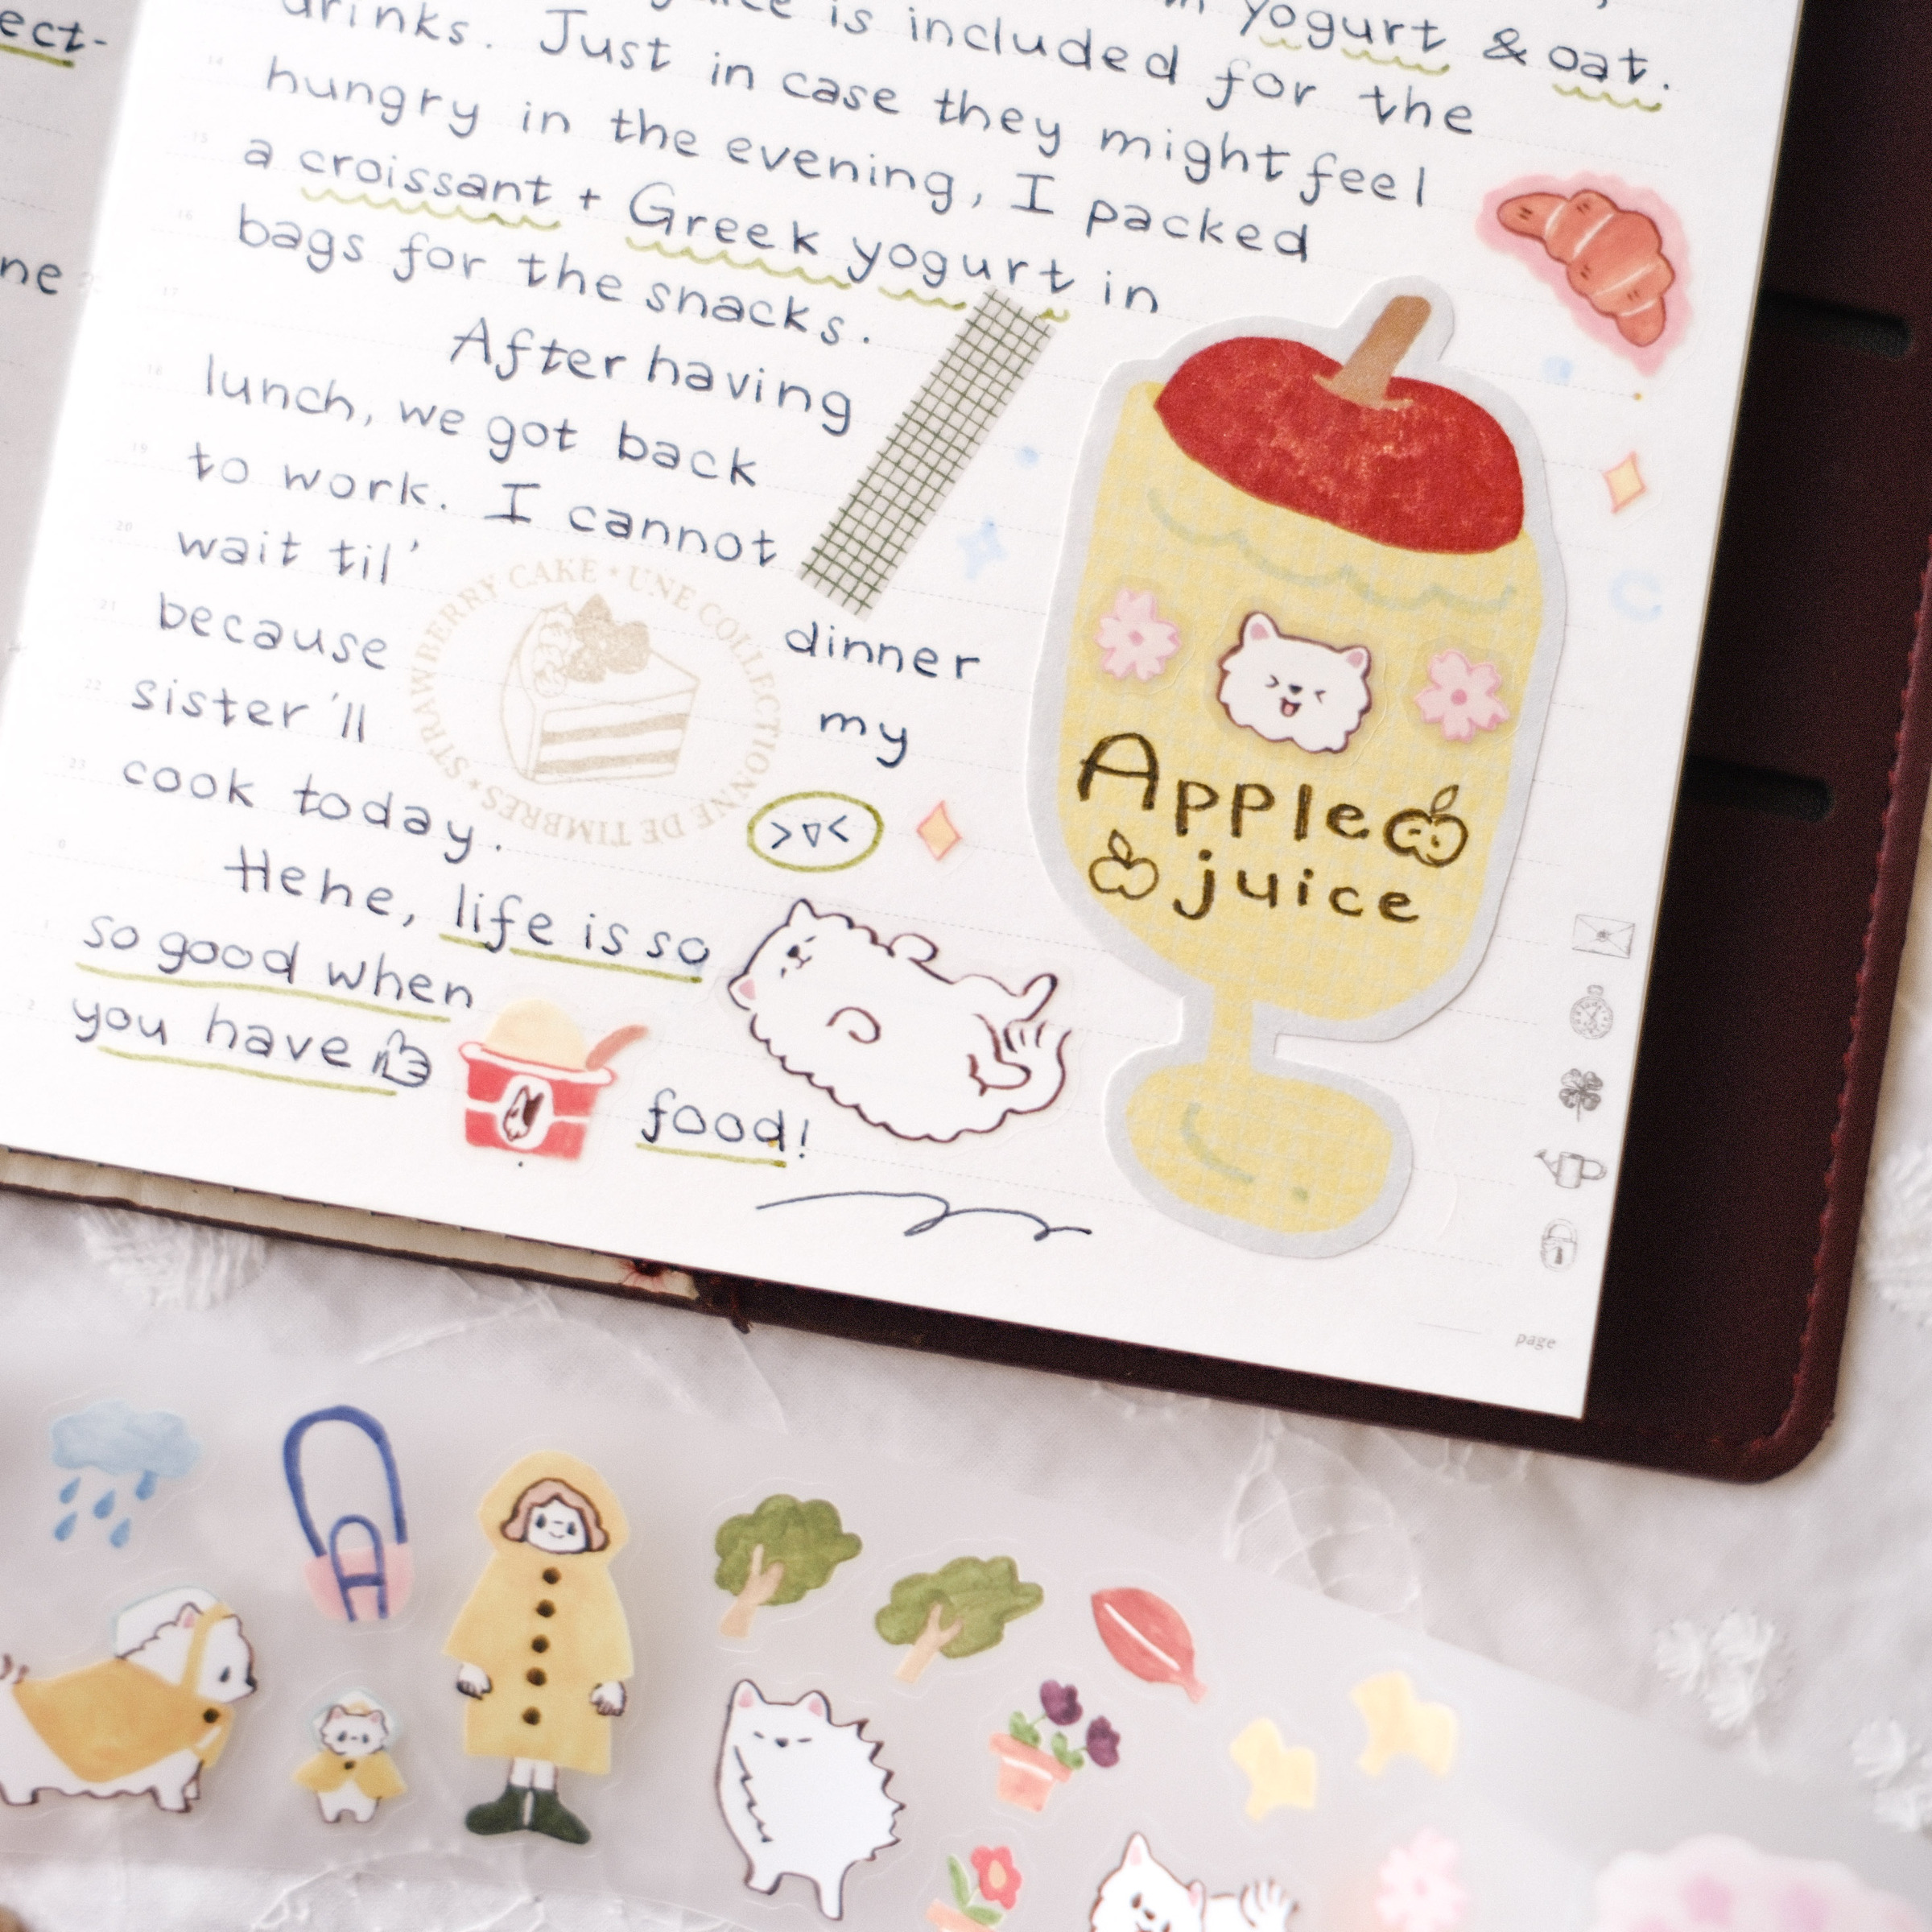 ect-
ne
yogurt & oat.
is included for the
drinks. Just in case they might feel
hungry in the evening, I packed
a croissant + Greek yogurt in
bags for the snacks.
After having
lunch, we got back
to work. I cannot
wait til' dinner
because my
sister'll
cook today. >▽<
Hehe, life is so
so good when
you have
food!
STRAWBERRY CAKE • UNE COLLECTIONNE DE TIMBRES •
Apple
juice
14
15
16
17
18
19
20
21
22
23
0
1
2
page